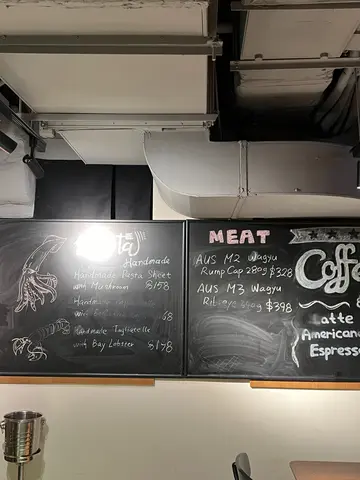 Handmade
Handmade Pasta Sheet
with Mushroom $158
68
Handmade Tagliatelle
with Bay Lobster $178
MEAT
AUS M2 Wagyu
Rump Cap 280g $328
AUS M3 Wagyu
$398
Coffe
Latte
American
Espress